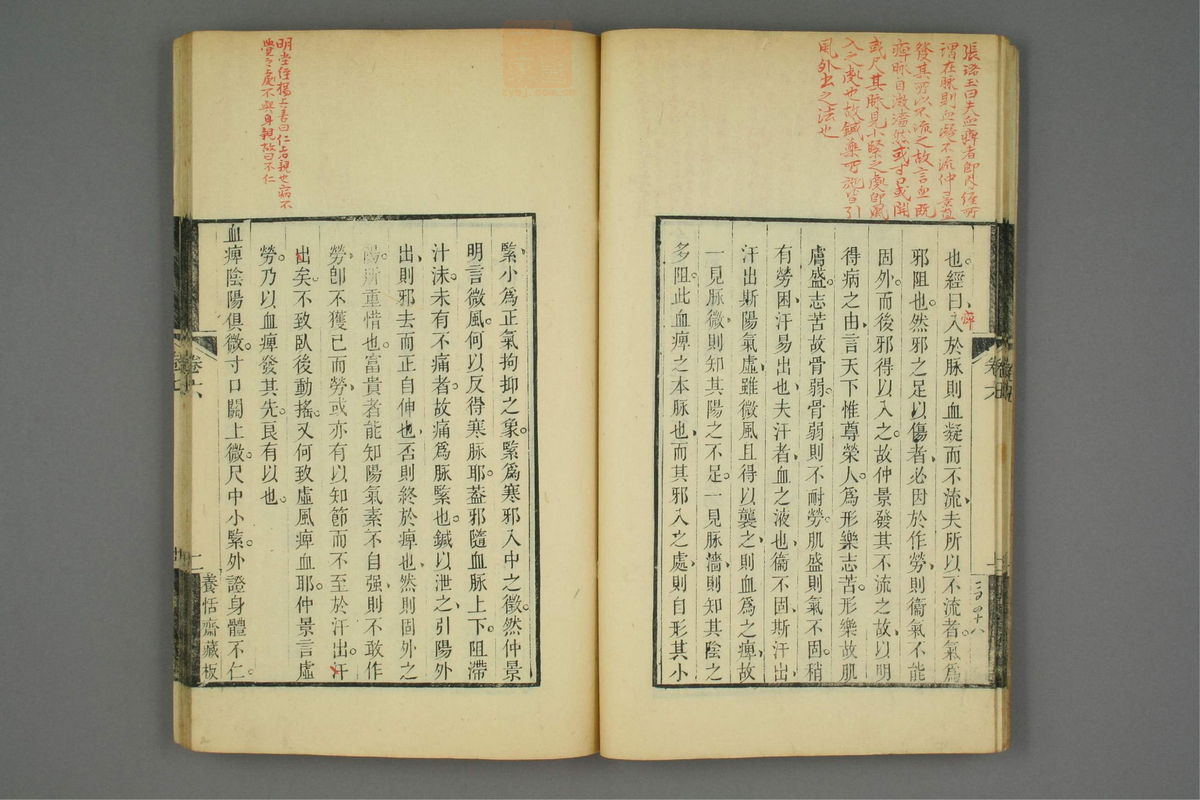 張路玉曰夫血痺者即內經所
謂在脉則血凝不流仲景直
發其所以不流之故言血既
痺脉自微濇然或寸或關
或尺其脉見小緊之處即風
入之處也故鍼藥所施皆引
風外出之法也
也經曰入於脉則血凝而不流夫所以不流者氣爲
痺
邪阻也然邪之足以傷者必因於作勞則衞氣不能
固外而後邪得以入之故仲景發其不流之故以明
得病之由言天下惟尊榮人爲形樂志苦形樂故肌
膚盛志苦故骨弱骨弱則不耐勞肌盛則氣不固稍
有勞困汗易出也夫汗者血之液也衞不固斯汗出
汗出斯陽氣虛雖微風且得以襲之則血爲之痺故
一見脉微則知其陽之不足一見脉濇則知其陰之
多阻此血痺之本脉也而其邪入之處則自形其小
卷六
明堂經楊上善曰仁者親也病不
覺之處不與身親故曰不仁
緊小爲正氣拘抑之象緊爲寒邪入中之徵然仲景
明言微風何以反得寒脉耶蓋邪隨血脉上下阻滯
汁沬未有不痛者故痛爲脉緊也鍼以泄之引陽外
出則邪去而正自伸也否則終於痺也然則固外之
陽所重惜也富貴者能知陽氣素不自强則不敢作
勞卽不獲已而勞或亦有以知節而不至於汗出汗
出矣不致臥後動搖又何致虛風痺血耶仲景言虛
勞乃以血痺發其先良有以也
血痺陰陽俱微寸口關上微尺中小緊外證身體不仁
卷六
二
養恬齋藏板